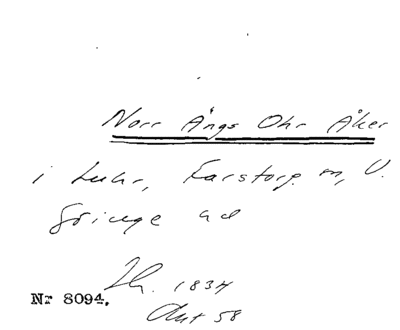 Norr Ängs Ohr Åker
i Luhr, Farstorp sn, V.
Göinge hd
Lh. 1834
Akt 58
Nr 8094.